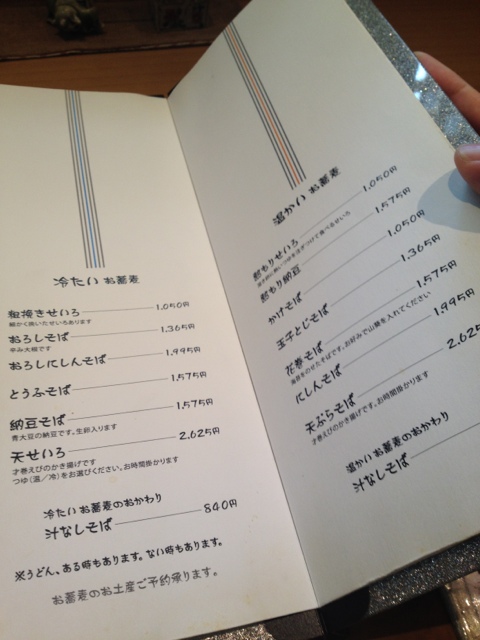 冷たい お蕎麦
粗挽きせいろ 1.050円
細かく挽いたせいろあります
おろしそば 1.365円
辛み大根です
おろしにしんそば 1.995円
とうふそば 1.575円
納豆そば 1.575円
青大豆の納豆です。生卵入ります
天せいろ 2.625円
才巻えびのかき揚げです
つゆ(温/冷)をお選びください。お時間掛かります
冷たいお蕎麦のおかわり
汁なしそば 840円
※うどん、ある時もあります。ない時もあります。
お蕎麦のお土産ご予約承ります。
温かい お蕎麦
熱もりせいろ 1.050円
熱もり納豆 1.575円
かけそば 1.050円
玉子とじそば 1.365円
花巻そば 1.575円
海苔をのせたそばです。お好みで山葵を入れてください
にしんそば 1.995円
天ぷらそば 2.625
才巻えびのかき揚げです。お時間掛かります
温かいお蕎麦のおかわり
汁なしそば